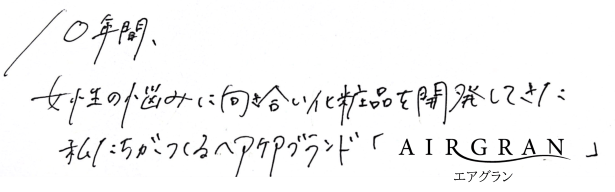 10年間、
女性の悩みに向き合い化粧品を開発してきた
私たちがつくるヘアケアブランド「AIRGRAN」
エアグラン